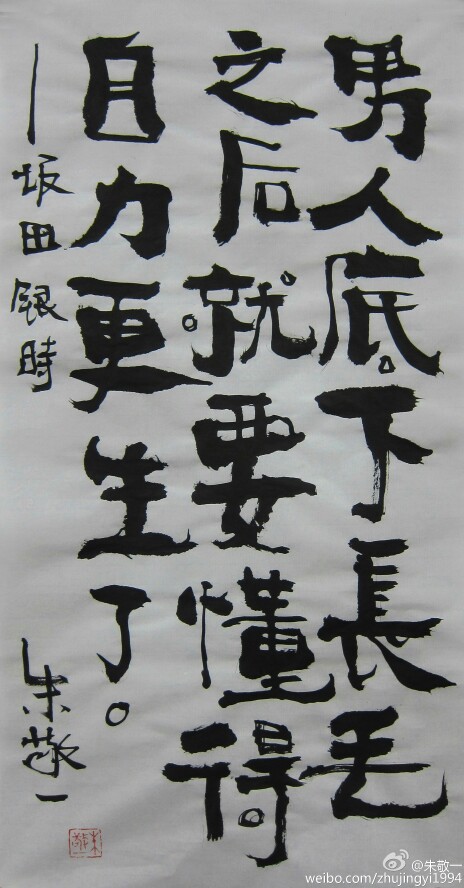 男人底下長毛
之后就要懂得
自力更生了。
—坂田銀時
朱敬一
@朱敬一
weibo.com/zhujingyi1994